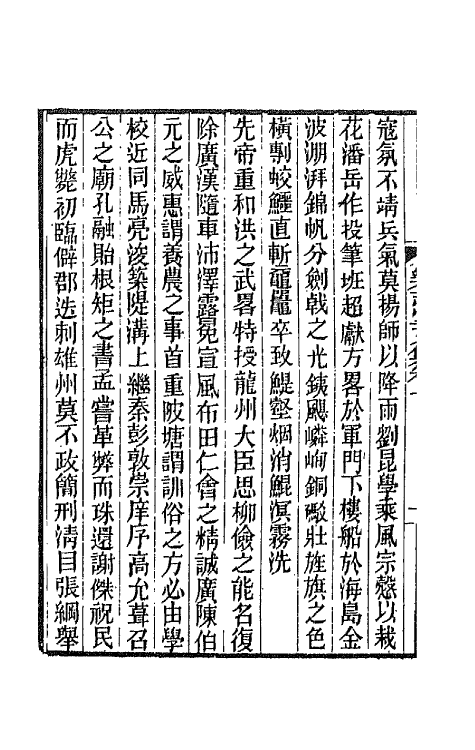 寇氛不靖兵氣莫揚師以降雨劉昆學乘風宗慤以栽
花潘岳作投筆班超獻方畧於軍門下樓船於海島金
波溯湃錦帆分劍戟之光銕颶嶙峋銅礟壯旌旗之色
橫剸蛟鱷直斬黿鼉卒致鯷壑烟消鯤溟霧洗
先帝重和洪之武畧特授龍州大臣思柳儉之能名復
除廣漢隨車沛澤露冕宣風布田仁會之精誠廣陳伯
元之威惠謂養農之事首重陂塘謂訓俗之方必由學
校近同馬亮浚築隄溝上繼秦彭敦崇庠序高允葺召
公之廟孔融貽根矩之書孟嘗革弊而珠還謝傑祝民
而虎斃初臨僻郡迭刺雄州莫不政簡刑淸目張綱舉